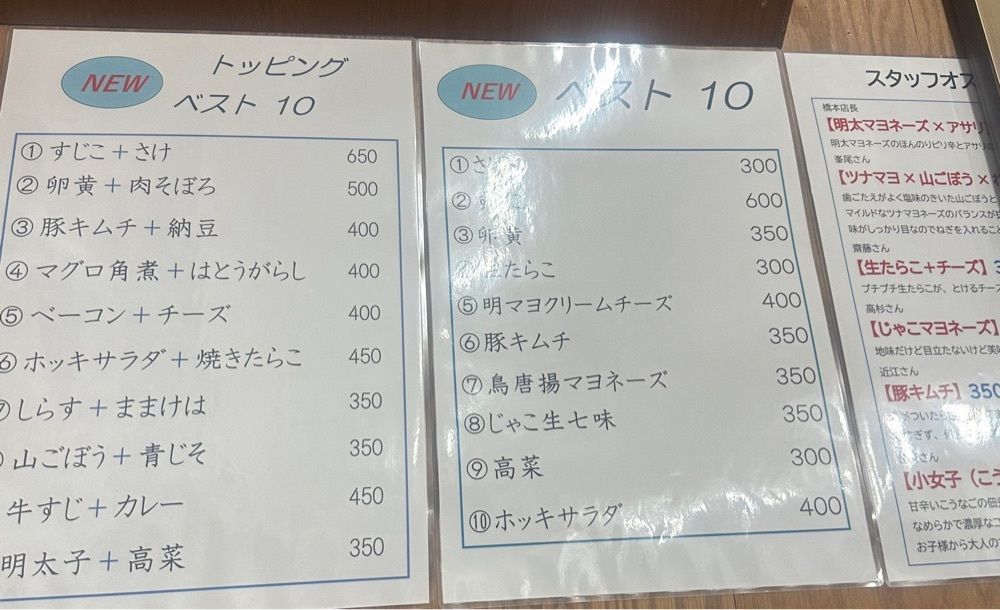 NEW
トッピング
ベスト 10
① すじこ＋さけ 650
② 卵黄＋肉そぼろ 500
③ 豚キムチ＋納豆 400
④ マグロ角煮＋はとうがらし 400
⑤ ベーコン＋チーズ 400
⑥ ホッキサラダ＋焼きたらこ 450
⑦ しらす＋ままけは 350
山ごぼう＋青じそ 350
牛すじ＋カレー 450
明太子＋高菜 350
NEW
ベスト 10
① さけ 300
② すじこ 600
③ 卵黄 350
生たらこ 300
⑤ 明マヨクリームチーズ 400
⑥ 豚キムチ 350
⑦ 鳥唐揚マヨネーズ 350
⑧ じゃこ生七味 350
⑨ 高菜 300
⑩ ホッキサラダ 400
スタッフオス
橋本店長
【明太マヨネーズ×アサリ
明太マヨネーズのほんのりピリ辛とアサリの
峯尾さん
【ツナマヨ×山ごぼう×
歯ごたえがよく塩味のきいた山ごぼうと
マイルドなツナマヨネーズのバランスが
味がしっかり目なのでねぎを入れること
齋藤さん
【生たらこ+チーズ】3
プチプチ生たらこが、とけるチーズ
高杉さん
【じゃこマヨネーズ】
地味だけど目立たないけど美味
近江さん
【豚キムチ】350
がついたら
すぎず、
さん
【小女子（こう
甘辛いこうなごの佃
なめらかで濃厚なコ
お子様から大人の